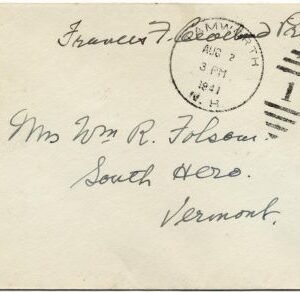 Frances F. Cleveland
TAMWORTH
AUG 2
3 PM
1941
N.H.
1
Mrs Wm R. Folsom.
South Hero.
Vermont.